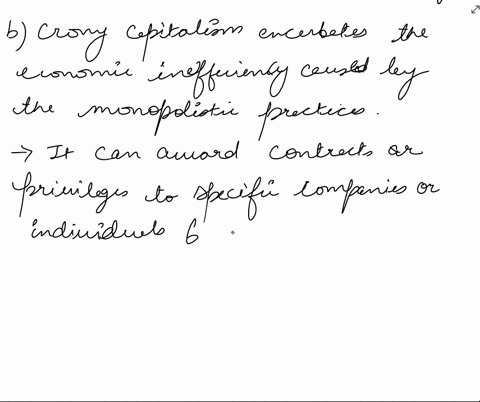 b) Crony Capitalism encerbates the
economic inefficiency caused by
the monopolistic practices.
→ It can award contracts or
privileges to specific companies or
individuals 6